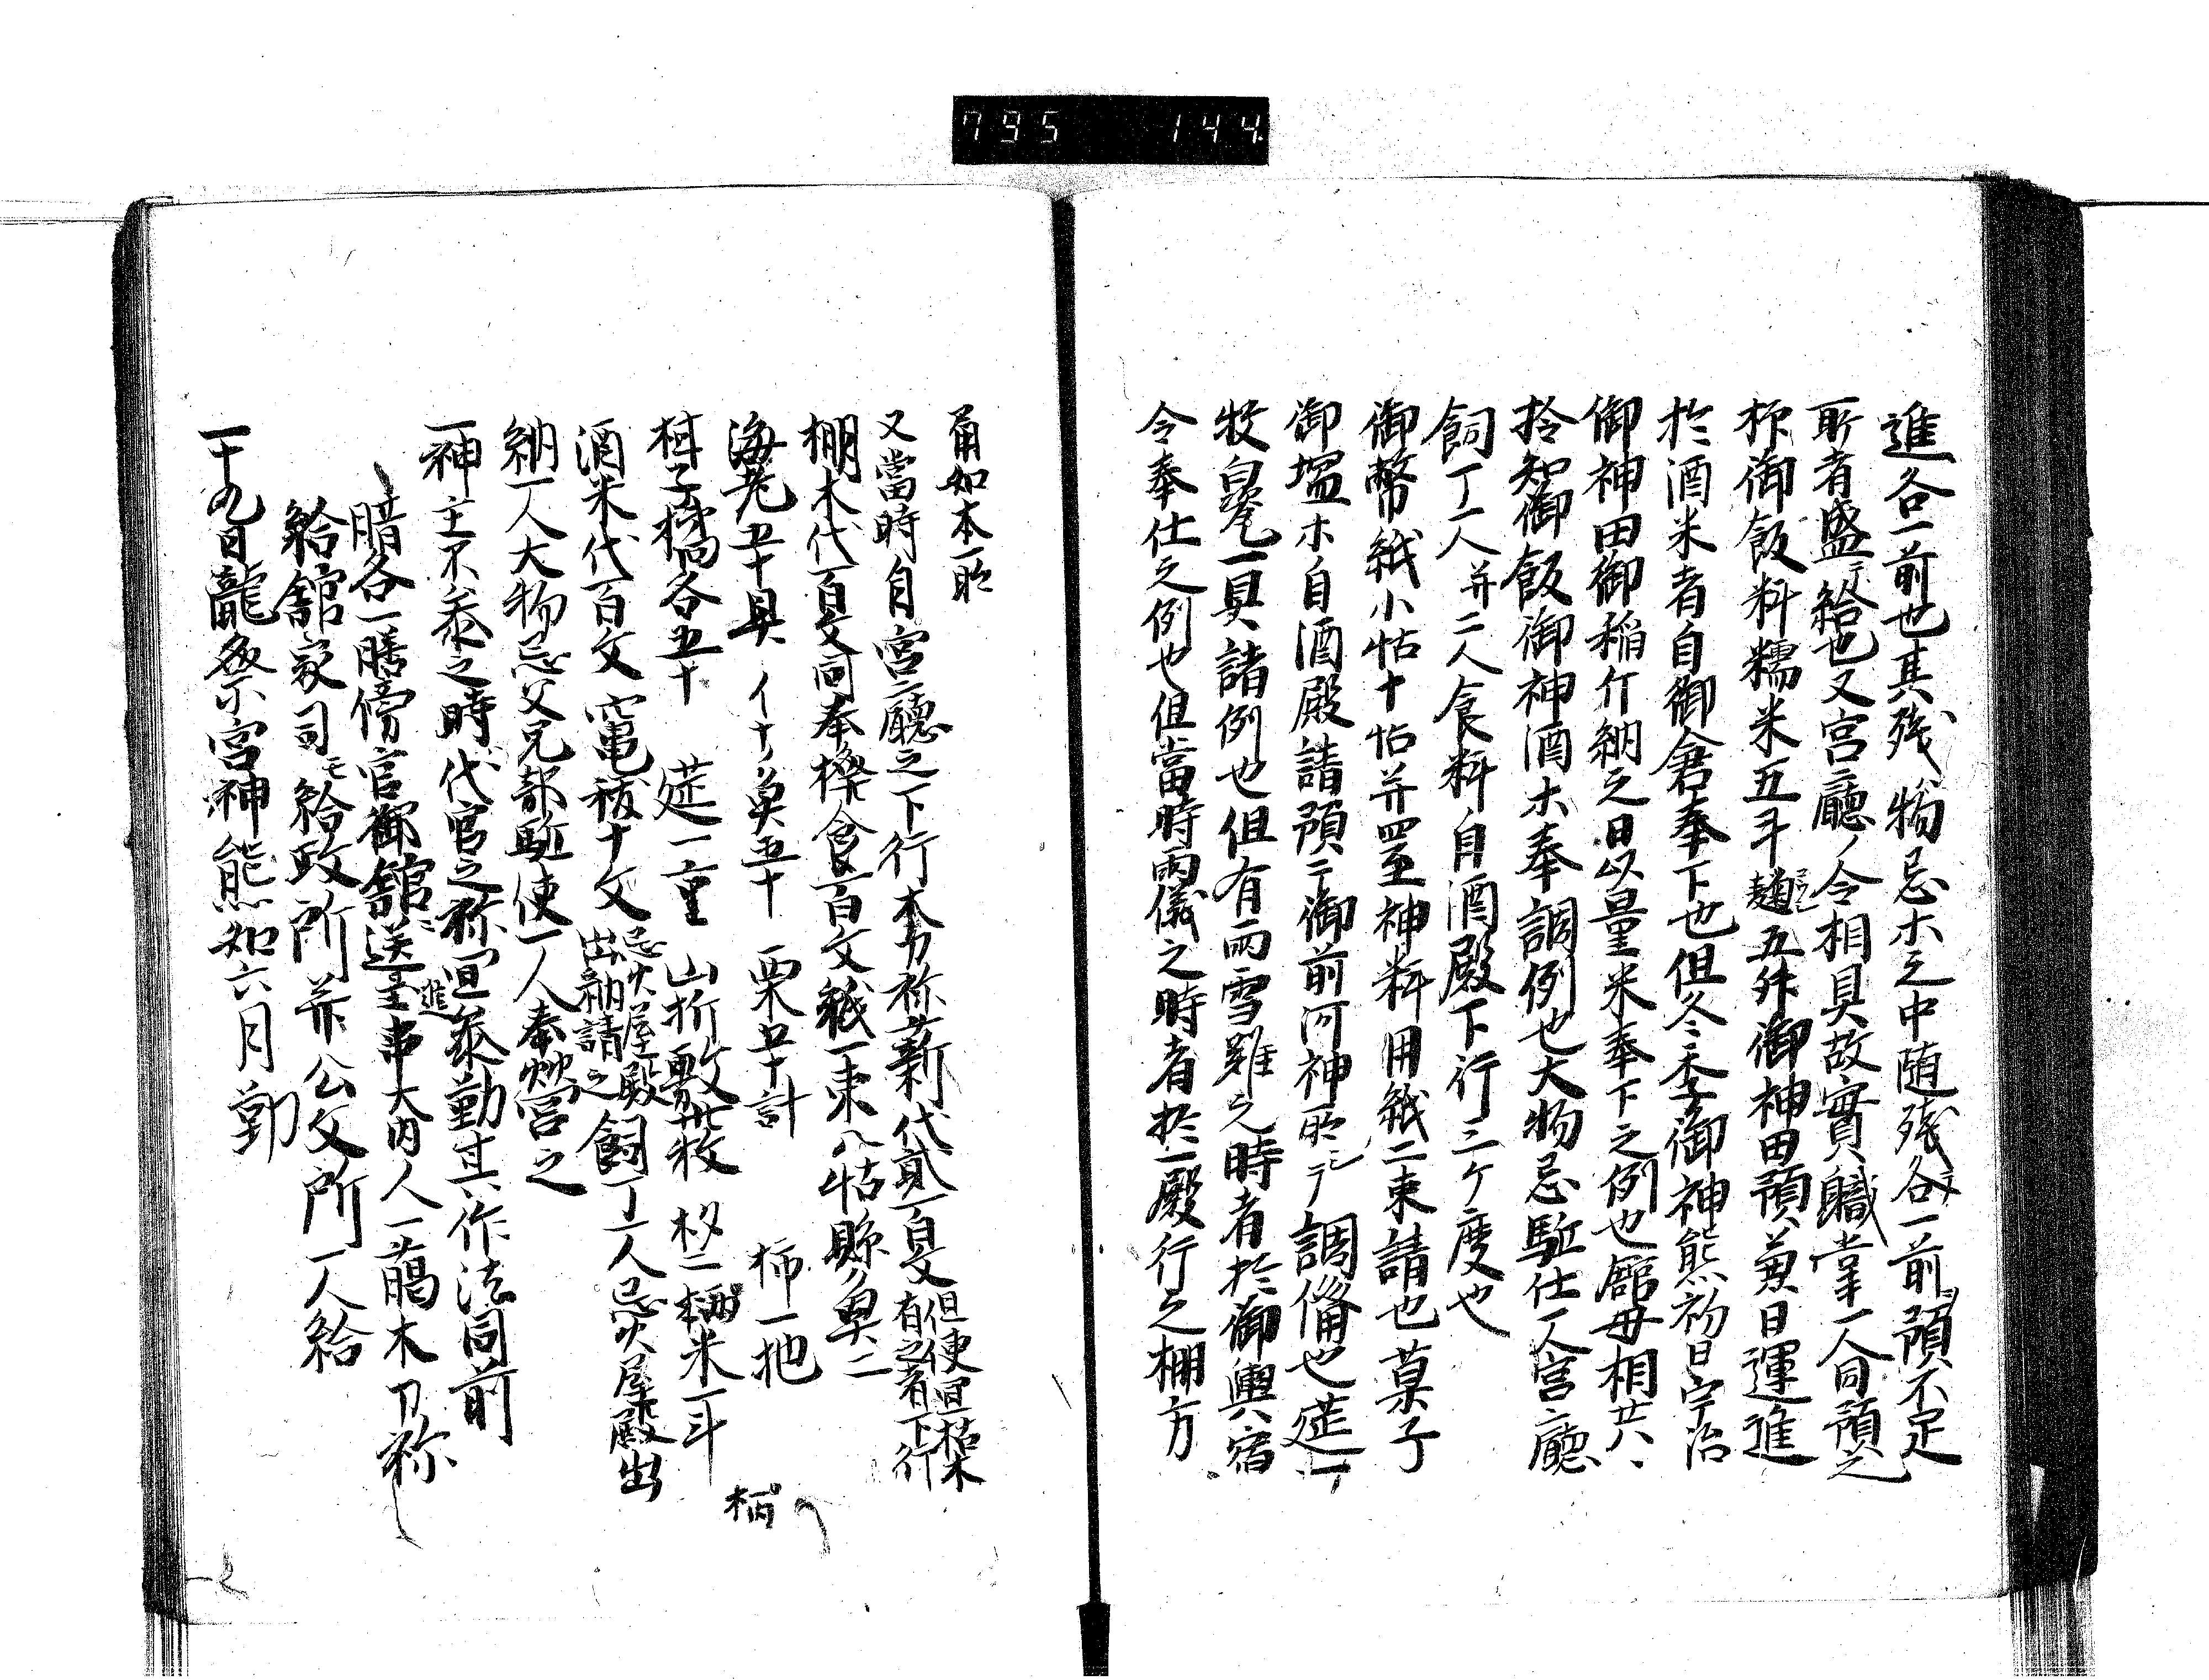 795 144
進各一前也其残物忌ホ之中随残各一前預不足
所者盛テ給也又宮廳ノ令相具故實職掌一人同預之
御飯料糯米五斗麹五舛御神田預兼日運進
於酒米者自御倉奉下也但冬季御神熊初日宇治
御神田御稲行納之日以量米奉下之例也舘母相共
知御飯御神酒ホ奉調例也大物忌駈仕一人宮廳
飼丁一人并二人食料自酒殿下行三ケ度也
御幣紙小帖十帖并置神料用紙二束請也菓子
御塩ホ自酒殿請預テ御前河神所ニテ調備也莚一
枚白瓷一具諸例也但有雨雪難之時者於御輿宿
令奉仕之例也但當時雨儀之時者於一殿行之棚方
甬如本一所
又當時自宮廳之下行本方祢薪代貳百文 但使逗檪木有之者下行
棚木代百文同奉檪食百文紙一束八帖縣魚二
海老五十具 イナノ魚五十 栗五十計 柿一把
柑子橘各五十 莚一重 山折敷廿枚 杓二柄 米一斗
柄
酒米代百文 竃祓十文 忌火屋殿出納請之 飼丁一人忌火屋殿出
納一人大物忌父兄部駈使一人奉炊宮之
一神主不参之時代官之祢逗参勤十六作法同前
一腊各一膳傍官御舘ニ送進事大内人一萬木刀祢
給舘家司ニモ給政所并公文所一人給
一十九日瀧祭宮神熊如六月勤